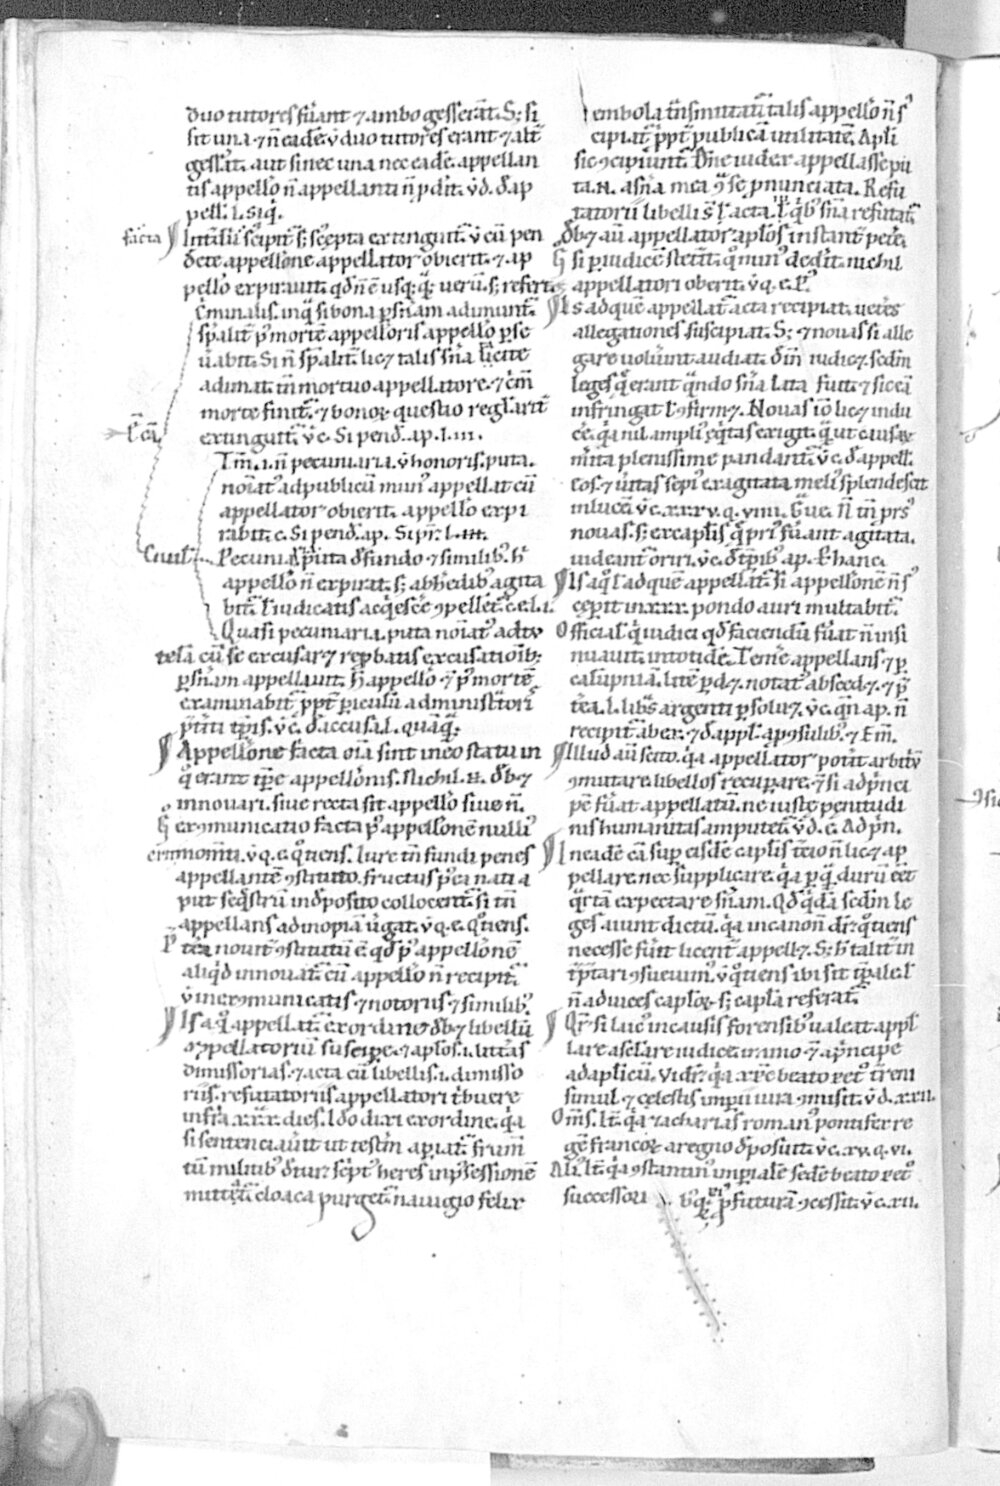 duo tutores fuerant ⁊ ambo gesserāt. S; si
sit una ⁊ n̄ eadē. ꝟ duo tutores erant ⁊ alt̄
gess̄it. aut si nec una nec eadē. appellan
tis appello n̄ appellanti n̄ ꝓdit. ꝟ. d. ap
pell. l. si q̄.
facta
dēte appellōne appellator obierit. ⁊ ap
pello expirauit. qd̄ n̄ ē usq; q̄q;. uerū s; refert.
c̄minalis. inq̄ si bona ꝑ sn̄iam adimunt̄.
sp̄alit̄ p̄ mortē appelloris appello ꝑse
u̅abit. Si n̄ sp̄alit̄ lic; talis sn̄ia licite
adimat. tn̄ mortuo appellatore. ⁊ c̄m̄
morte finit̄. ⁊ bonoꝝ questio reg̅larit̄
extinguit̄. ꝟ. c. Si pend̄. ap. l. iii.
l̄ cā
Tm̄. i. n̄ pecuniaria. ꝟ honoris. puta.
noīat᷒ ad publicū mun᷒ appellat cū
appellator obierit. appello expi
rabit. c. Si pend̄. ap. Si pr̄. l. iii.
Ciuil̄
Pecunīa puta d̄ fundo ⁊ similib᷒. h̄
appello n̄ expirat. s; ab h̄edib᷒ agita
bit̄. l̄ iudicatis acq̄escē ꝯpellet̄. c. e. l. i.
Quasi pecuniaria. puta noīat᷒ ad tu
telā cū se excusar; ⁊ rep̄batis excusatiōib;
ꝑ sn̄iam appellauit. h̄ appello ⁊ p̄ mortē
examinabit̄ ꝓpt̄ ꝑiculū administ̄tori
p̄t̄iti tp̄is. ꝟ. c. d̄ accusa. l. quāq̄;
Appellōne facta oīa sint in eo statu in
q̄ erant tp̄e appellōnis. Nichil. n. d̄b;
innouari. siue recta sit appello siue n̄.
h̄ exꝯmunicatio facta p̄ appellonē nulli᷒
ē mom̄ti. ꝟ. q. e. q᷒tiens. Iure tn̄ fundi penes
appellantē ꝯstituto. fructus p̄ea nati a
put seq̄strū in d̄posito collocent̄. si tn̄
appellans ad inopiā u̅gat. ꝟ. q. e. q᷒tiens.
P̄tea nouit̄ ꝯstitutū ē. qd̄ p̄ appellonē
aliq̄d innouat̄. cū appello n̄ recipit̄
ꝟ in exꝯmunicatis ⁊ notoriis ⁊ similib᷒.
Is a q̄ appellat̄. ex ordine d̄b; libellū
appellatoriū suscipe. ⁊ apl̄os. i. litt̄as
dimissorias. ⁊ acta cū libellis. i. dimisso
riis. refutatoriis. appellatori t̄buere
infra xxx. dies. Ideo dixi ex ordine. q̄a
si sentenciau̅it ut testm̄ apiat̄. frum̄
tū militib᷒ d̄tur. sc̄pt᷒ heres in ꝓsessionē
mittat̄. cloaca purget̄. nauigio felix
embola tn̄smittat̄. talis appello n̄ s᷒
cipiat̄ ꝓpt̄ publicā utilitatē. Apl̄i
sic ꝯcipiunt̄. Dn̄e iudex appellasse pu
ta. N. a sn̄ia mea ꝯ se ꝓnunciata. Refu
tatorii libelli s̄ l̄ acta. l̄ q̄b᷒ sn̄ia refutat̄
d̄b; aū appellator apl̄os instant̄ petē.
h̄ si p̄ iudicē stet̄it. q᷒min᷒ dedit. nichil
appellatori oberit. ꝟ. q. e. P᷒
Is ad quē appellat̄. acta recipiat. uet̄es
allegationes suscipiat. S; ⁊ nouas si alle
gare uolu̅int. audiat. d̄m̄ iudic; sedm̄
leges q̄ erant q̄ndo sn̄ia lata fuit. ⁊ sic eā
infringat l̄ ꝯfirm;. Nouas iō lic; indu
cē. q̄a nil ampli᷒ eq̄tas exigit. q̄ ut causaꝝ
m̄ita plenissime pandant̄. ꝟ. c. d̄ appell.
eos. ⁊ u̅itas sepi᷒ exagitata meli᷒ splendescit
in lucē. ꝟ. c. xxxv. q. viiii.
nouas. s; ex caplis q̄ pri᷒ fu̅ant agitata.
uideant̄ oriri. ꝟ. c. d̄ tp̄ib᷒ ap. ⁊ hanc.
Is a q᷒ l̄ ad quē appellat̄. si appellonē n̄ s᷒
cepit in xxx. pondo auri multabit̄.
Official᷒ q̄ iudici qd̄ faciendū fu̅at n̄ insi
nuauit. in totidē. Tem̄e appellans ⁊ ꝑ
calūpniā. litē ꝑd;. notat᷒ absced;. ⁊ p̄
t̄ea. l. lib̄s argenti ꝑsolu;. ꝟ. c. q̄n ap. n̄
recipit̄.
Illud aū scito. q̄a appellator pot̄it arbit̄u
ꝯmutare. libellos recupare. ⁊ si ad p̄nci
pē fu̅at appellatū. ne iuste penitudi
nis humanitas amputet̄. ꝟ. d. c. Ad p̄n.
In eadē cā sup eisdē caplis t̄cio n̄ lic; ap
pellare. nec supplicare. q̄a ꝑq̄ durū eēt
q̄rtā expectare sn̄iam. Qd̄ q̄dā sedm̄ le
ges aiunt dictū. q̄a in canon̄ dr̄. q᷒tiens
necesse fu̅it licent̄ appell;. S; h̄ talit̄ in
t̄p̄tari ꝯsueuim᷒. ꝟ q᷒tiens ibi sit tp̄ale. l̄
n̄ ad uices caploꝝ. s; capl̄a referat̄.
Qr̄. si laic᷒ in causis forensib᷒ ualeat appl̄
lare a sc̄lare iudice. immo ⁊ a p̄ncipe
ad aplicū. Vidr̄. q̄a xp̄c beato pet᷒ t̄reni
simul ⁊ celestis imperii iura ꝯmisit. ꝟ. d. xxii.
Om̄s. It̄. q̄a zacharias roman᷒ pontifex re
gē francoꝝ a regno d̄posuit. ꝟ. c. xv. q. vi.
Ali᷒. It̄. q̄a ꝯstantin᷒ imp̄ialē sedē beato pet᷒
successori